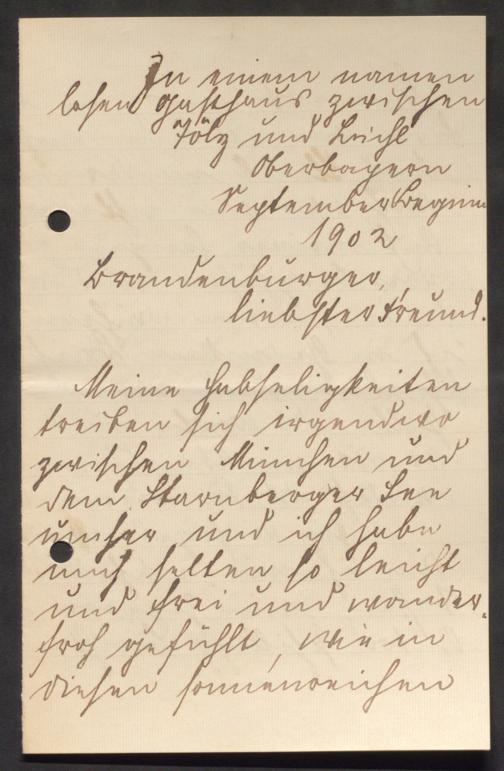 In einem namen
losen Gasthaus zwischen
Tölz und Bichl
Oberbayern
September Beginn
1902
Brandenburger,
liebster Freund.
Meine Habseligkeiten
treiben sich irgendwo
zwischen München und
dem Starnberger See
umher und ich habe
mich selten so leicht
und frei und wander-
froh gefühlt, wie in
diesen sonnenreichen